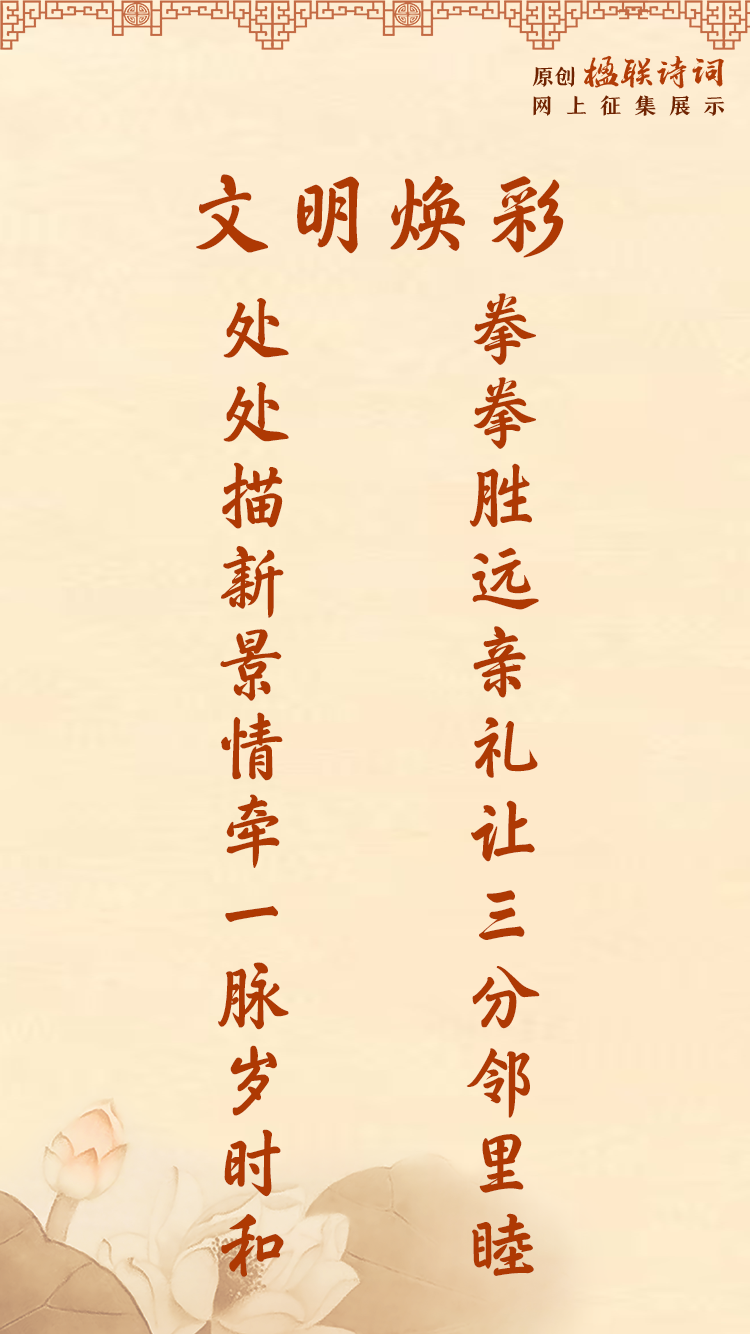 原创 楹联诗词
网上征集展示
文明焕彩
拳拳胜远亲礼让三分邻里睦
处处描新景情牵一脉岁时和